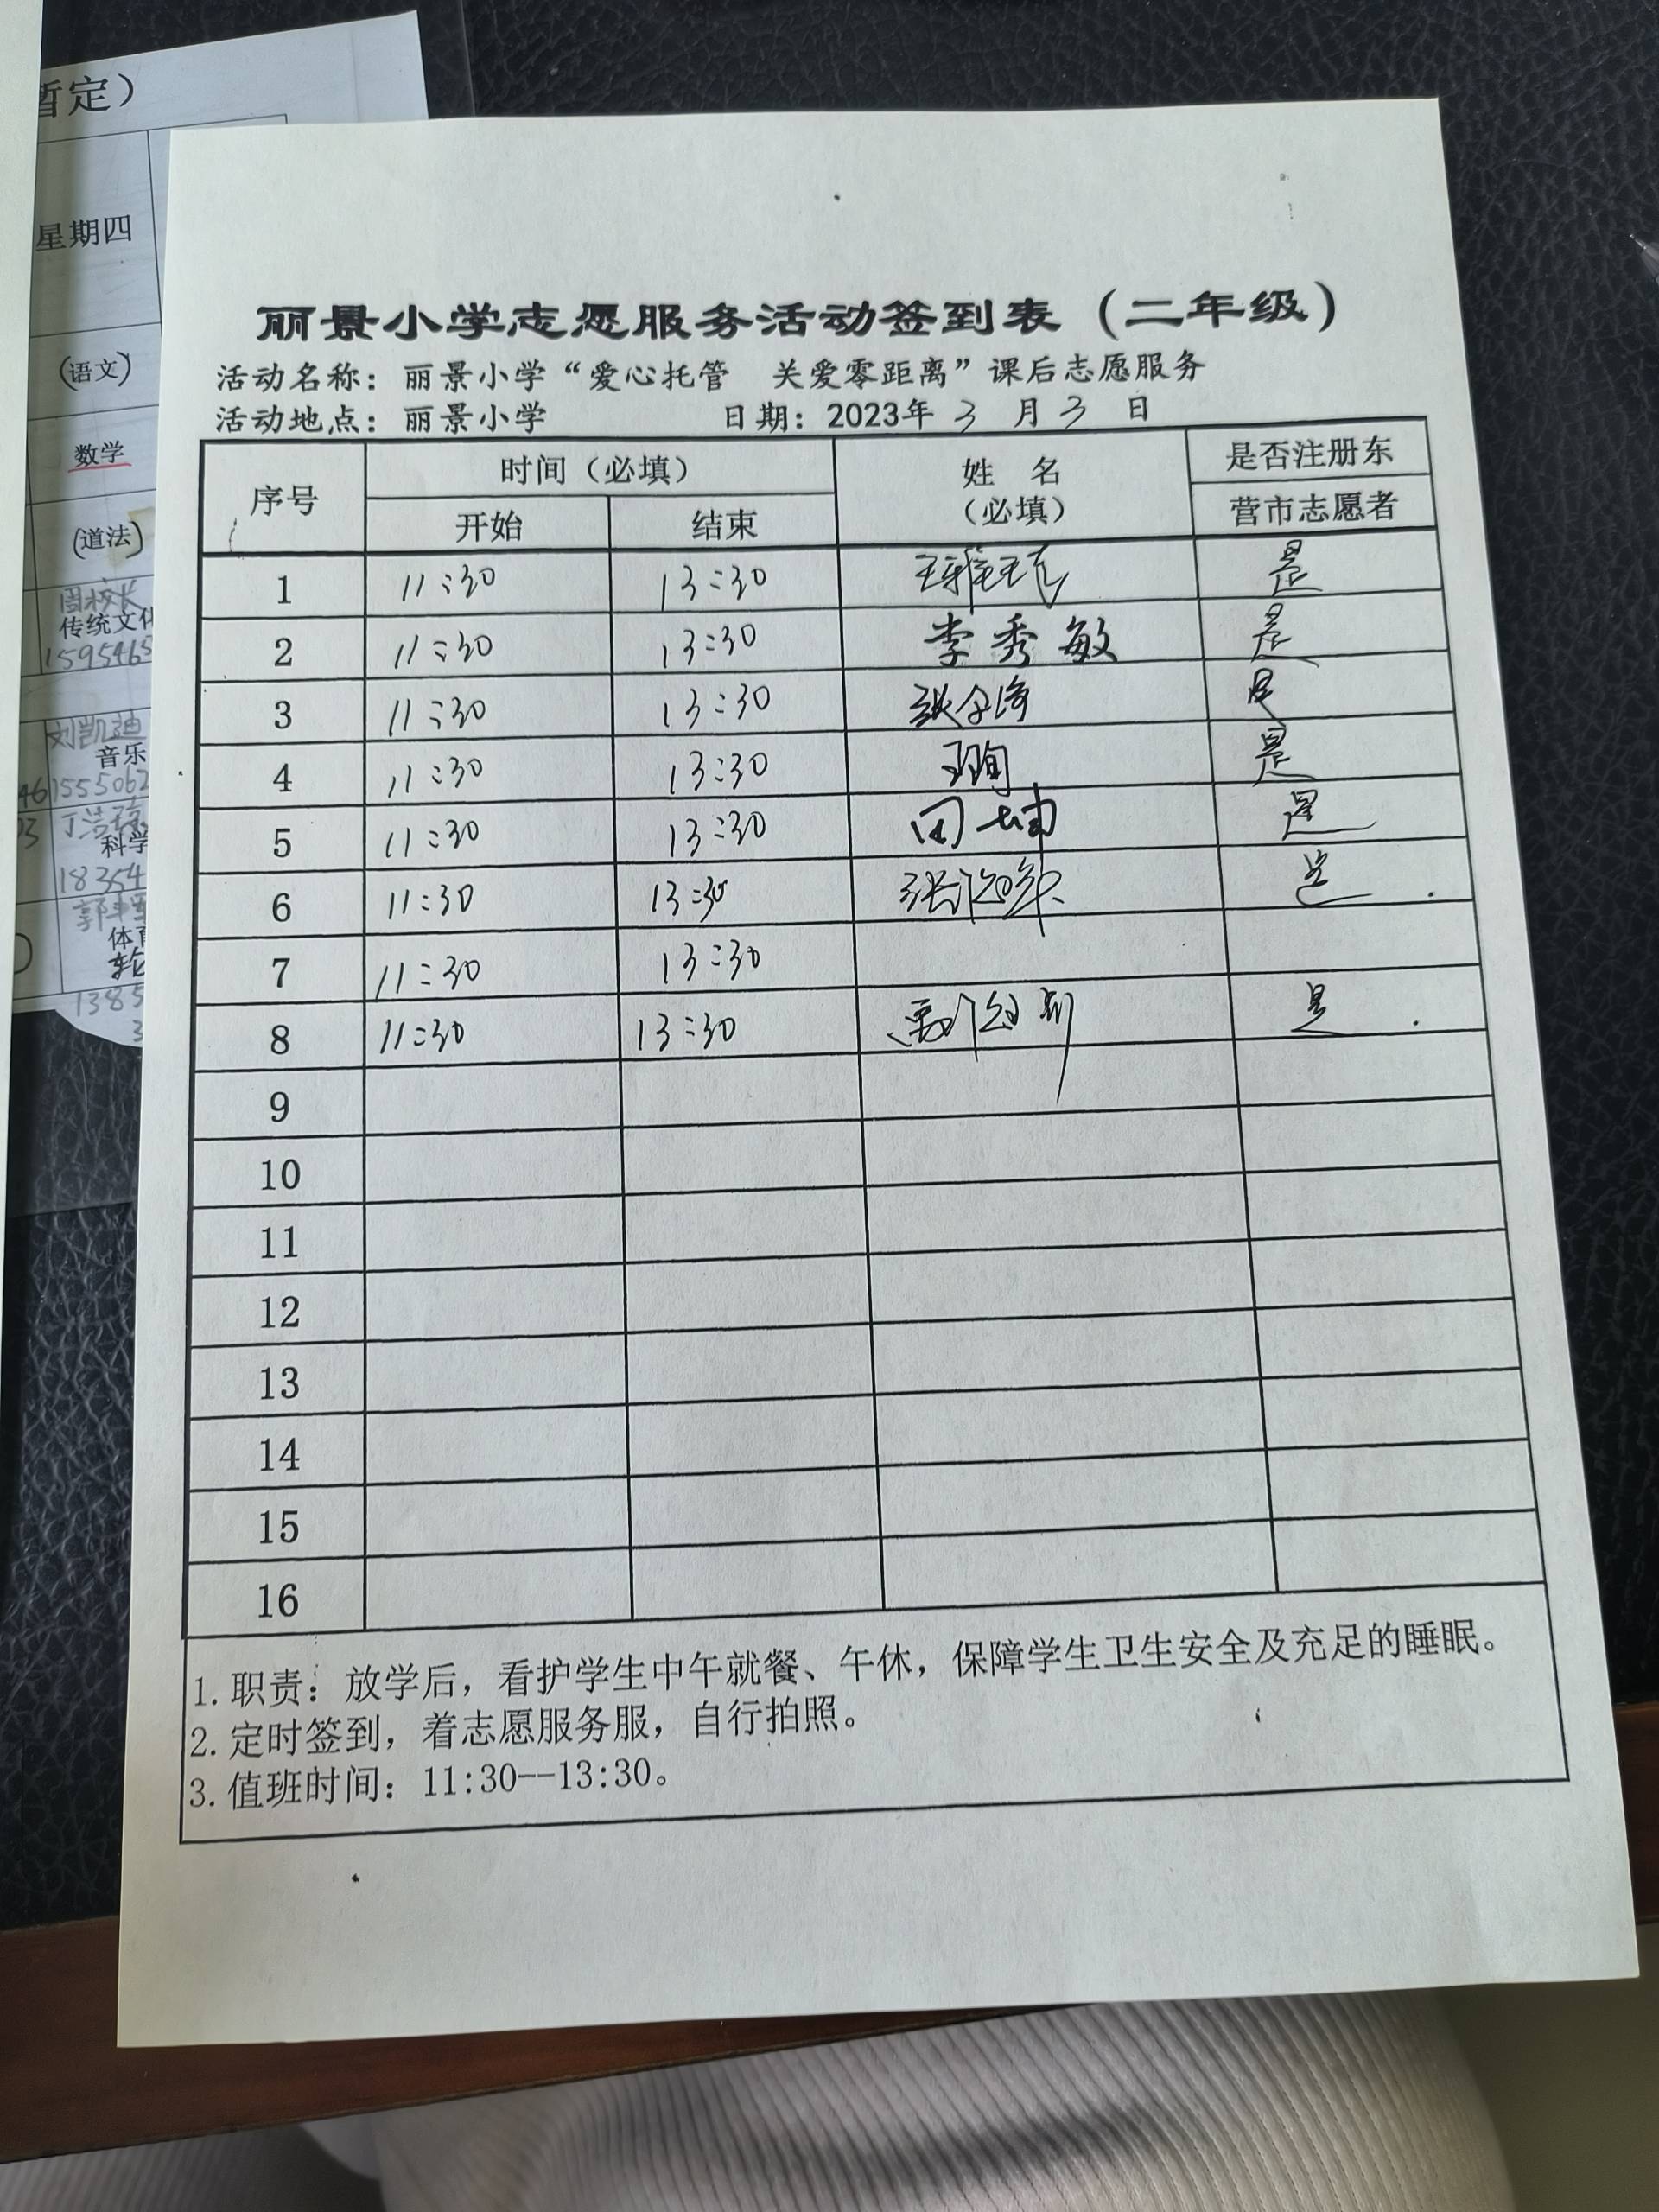 暂定）
星期四
（语文）
数学
（道法）
周校长
传统文化
1595465
刘凯迪
音乐
1555062
科学
18354
体育
轮
1385
丽景小学志愿服务活动签到表（二年级）
活动名称：丽景小学“爱心托管 关爱零距离”课后志愿服务
活动地点：丽景小学 日期：2023年 3 月 3 日
序号 时间（必填） 姓 名（必填） 是否注册东营市志愿者
开始 结束
1 11:30 13:30 是
2 11:30 13:30 李秀敏 是
3 11:30 13:30 是
4 11:30 13:30 是
5 11:30 13:30 田坤 是
6 11:30 13:30 是
7 11:30 13:30
8 11:30 13:30 是
9
10
11
12
13
14
15
16
1.职责：放学后，看护学生中午就餐、午休，保障学生卫生安全及充足的睡眠。
2.定时签到，着志愿服务服，自行拍照。
3.值班时间：11:30--13:30。